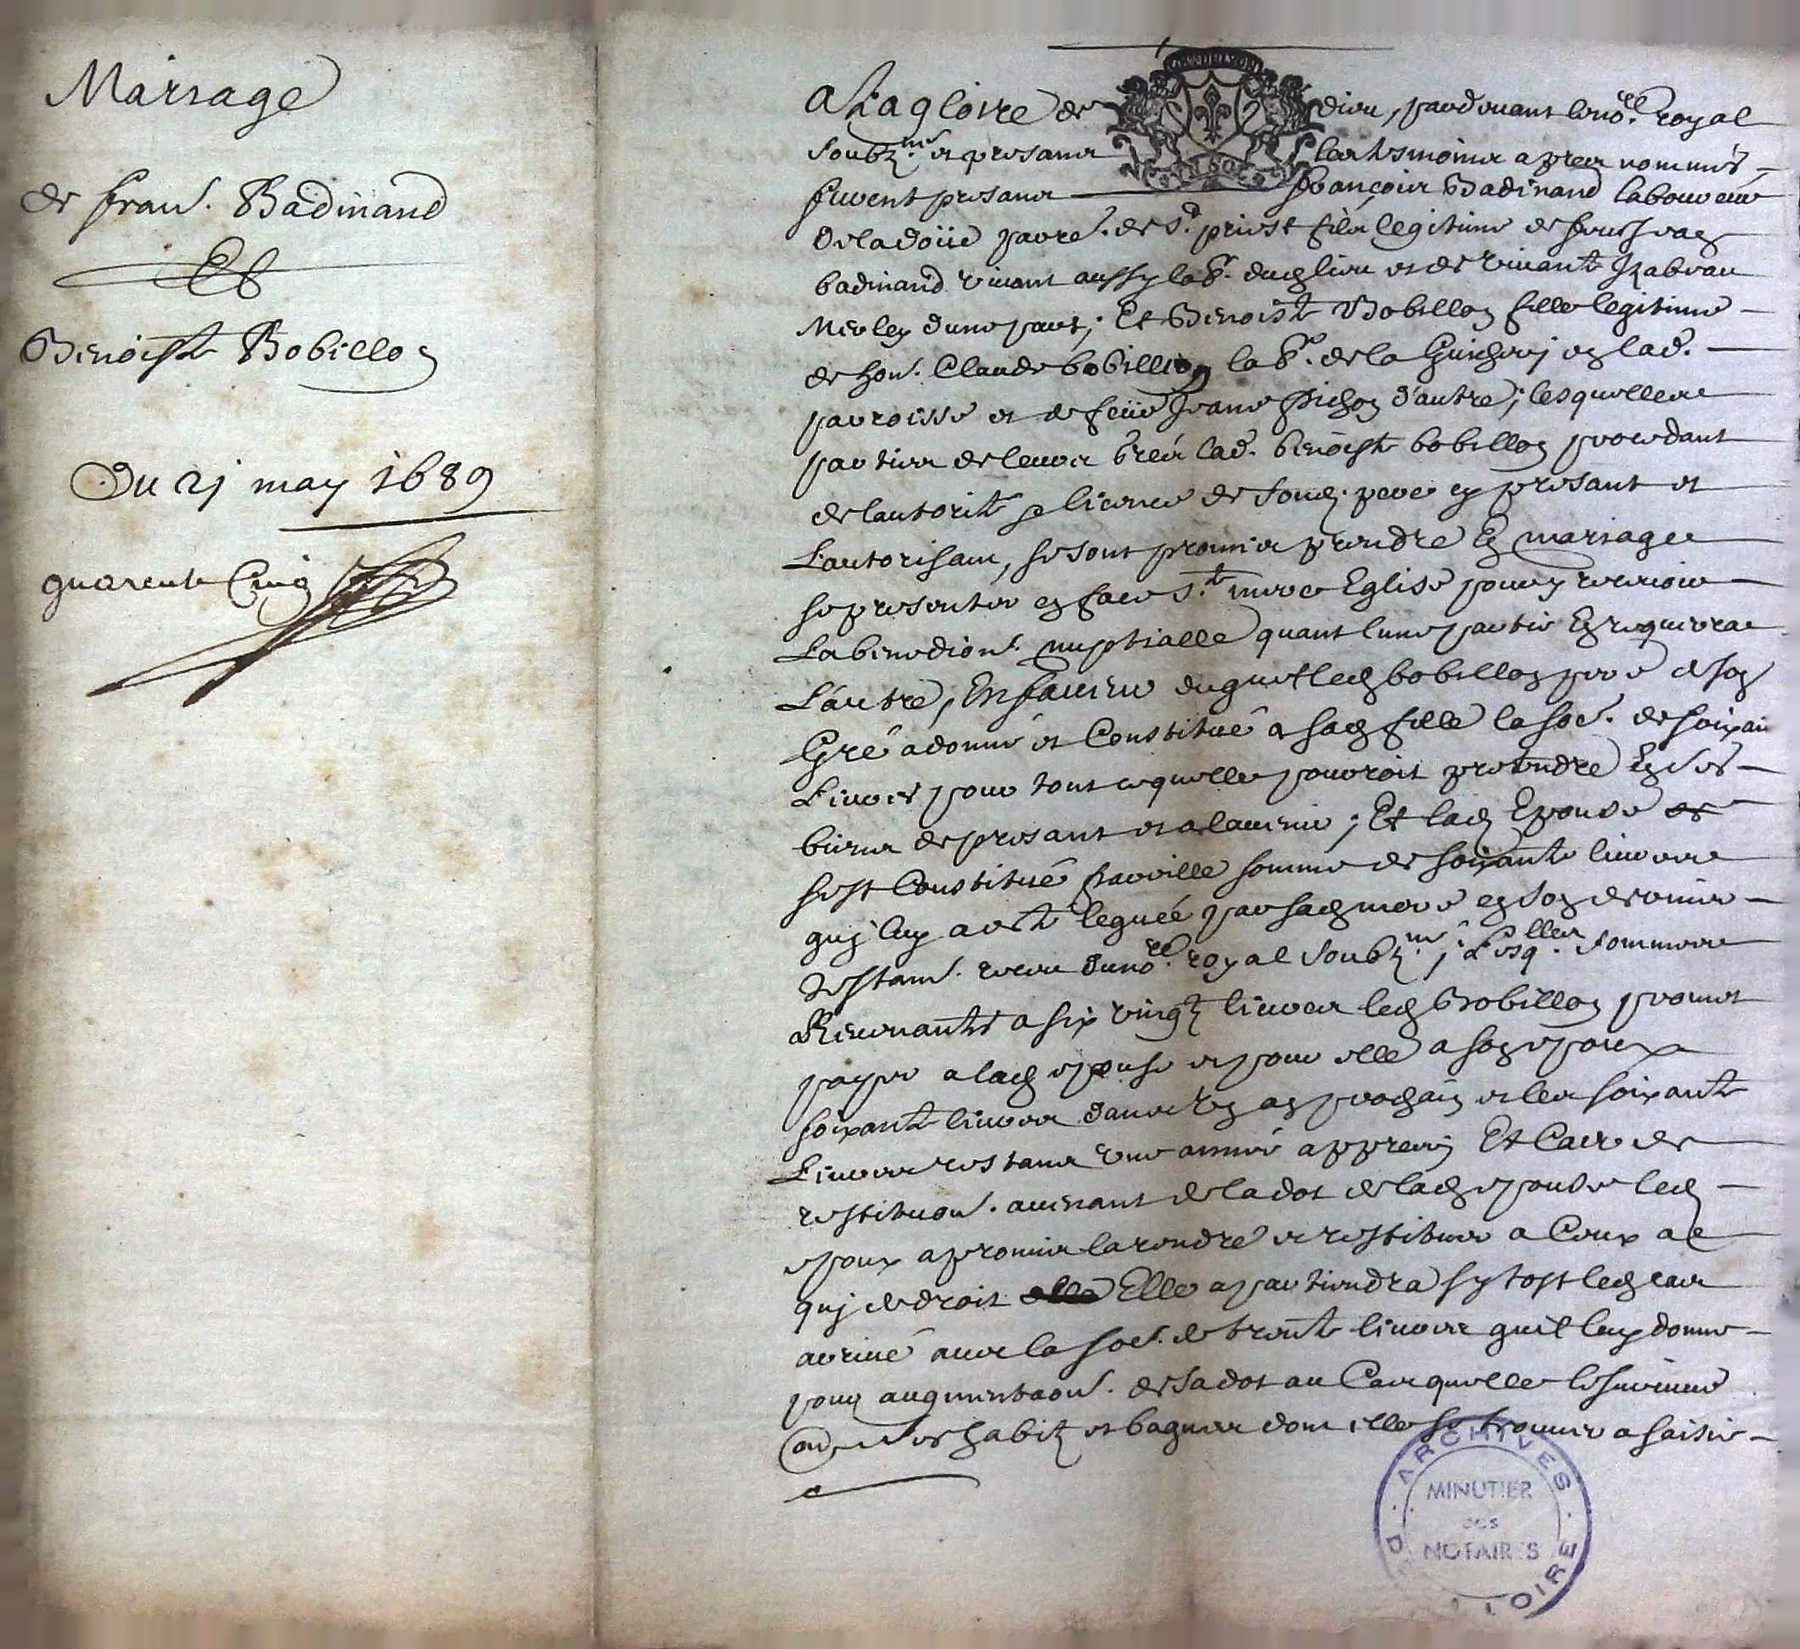 Mariage
de fran. Badinand
Et
Benoiste Bobillon
Du 21 may 1689
quarente Cinq
A La gloire de dieu, pardevant le no.re royal
soubz.né et presans les tesmoins apres nommés
furent presans françois Badinand laboureur
de la doüe parre. de st. priest fils legitime de feu
badinand vivant aussy lab.r dud lieu et de vivante Izabeau
Merley d'une part; Et Benoiste Bobillon fille legitime
de hon. Claude bobillion lab.r de la en lad.
parroisse et de feüe Jeane Pichon d'autre; lesquelles
parties de leurs grés lad. benoiste bobillon procedant
de lautorité licence de sond. pere presant et
L'autorisant, se sont promis prendre en mariage
se presenter en face ste. mere Eglise pour y recevoir
La benediction. nuptialle quant l'une partie En requerra
L'autre, En faveur duquel led bobillon pere de son
Gré a donné et Constitué a sad fille la so.e de soixante
Livres pour tout ce quelle pouvroit pretendre En ses
biens de presant et a l'avenir; Et lad Epouse
s'est Constitué pareille somme de soixante livres
quj luy a esté leguée par sad mere en son dernier
Testam. receu du no.re royal soubz.né; Lesq.lles sommes
Revenants a six vingtz livres led Bobillon promet
payer a lad epouse et pour elle a son epoux
soixante livres d'avec un an prochain et les soixante
Livres restans une année apprés Et Cas de
restitution. avenant de la dot de lad epouse led
epoux a promis la rendre et restituer a Ceux a
quj de droit Elle apartiendra sy tost led cas
arrivé avec la so.e de trente livres quil luy donne
pour augmentaon. de sa dot au Cas quelle le survive
avec ses habitz et bagues dont elle se trouvera saisie
ARCHIVES
MINUTIER
DES
NOTAIRES
LOIRE